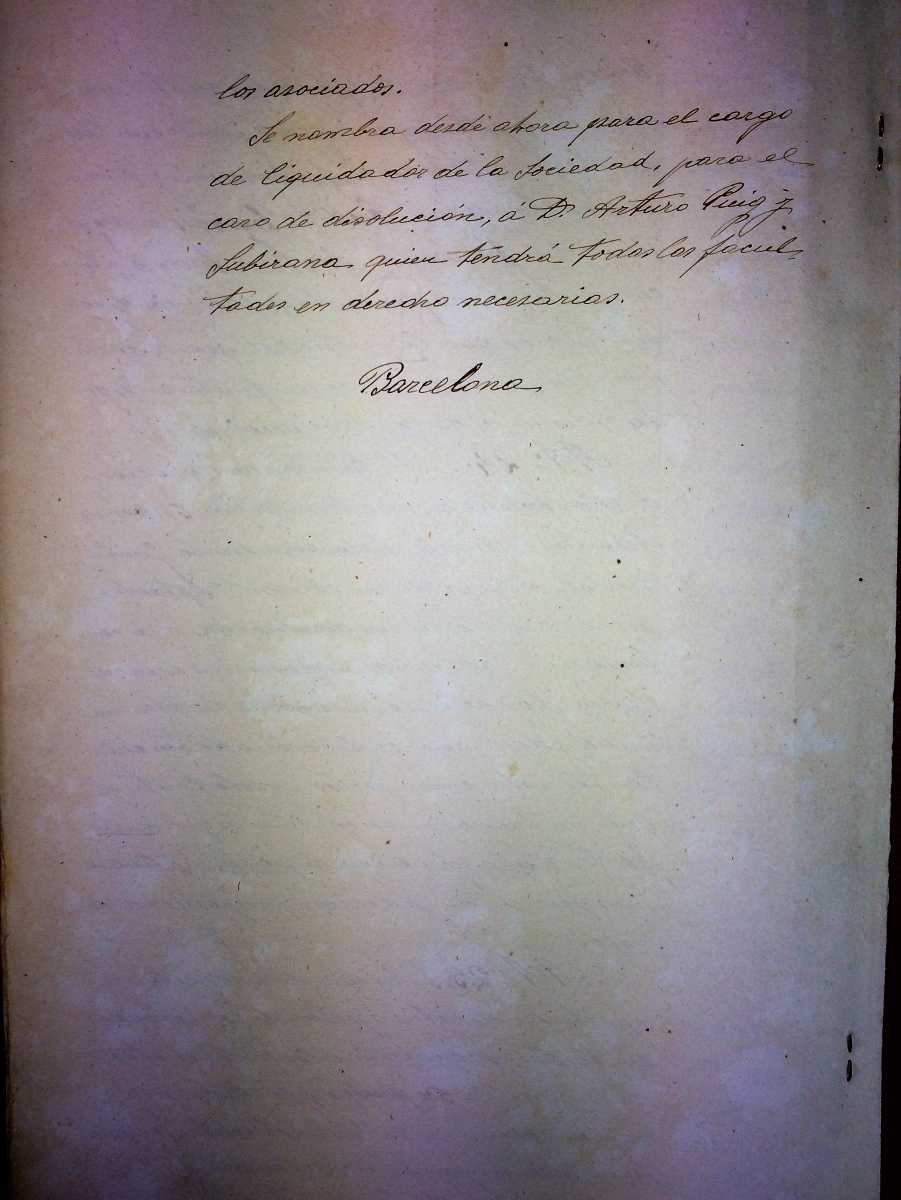 los asociados.
Se nombra desde ahora para el cargo
de liquidador de la Sociedad, para el
caso de disolución, á D. Arturo Puig y
Subirana quien tendrá todas las facul-
tades en derecho necesarias.
Barcelona